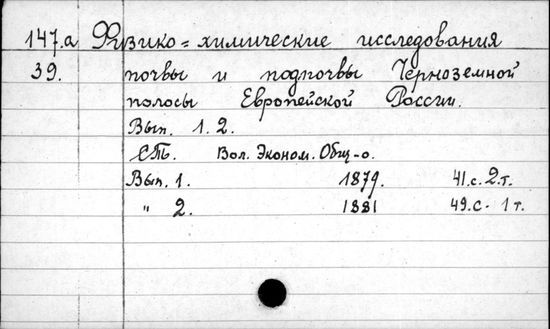 147.а Физико=химические исследования
39. почвы и подпочвы Черноземной
полосы Европейской России.
Вып. 1.2.
СПб. Вол. Эконом. Общ-о.
Вып. 1. 1879. 41.с. 2.т.
" 2. 1881 49.с. 1 т.